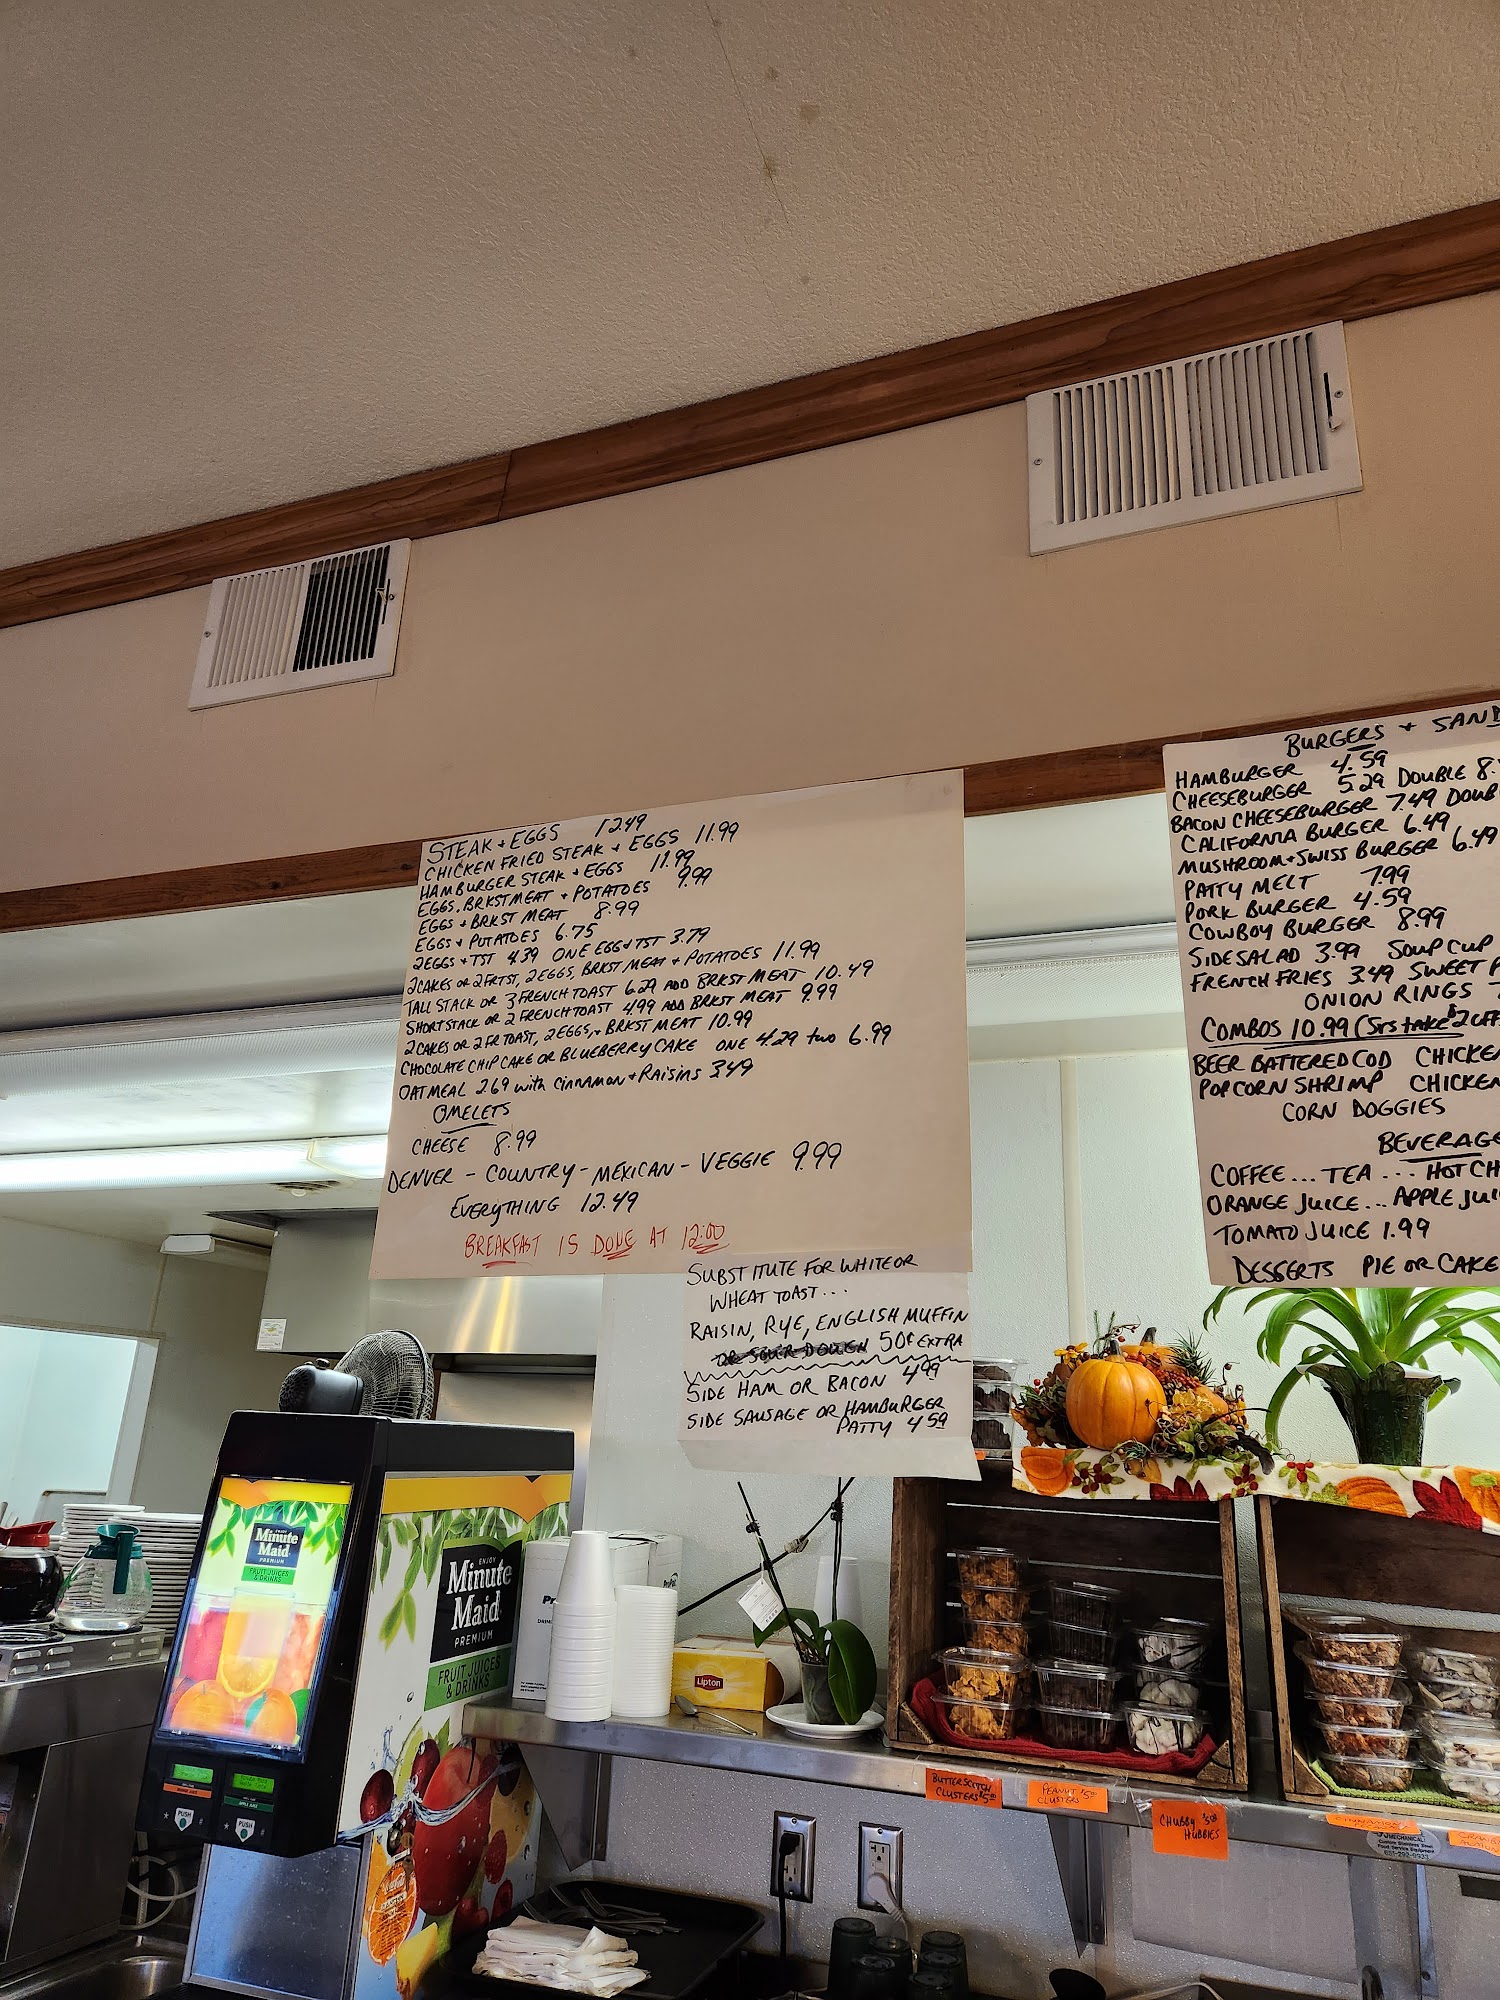 STEAK + EGGS 12.49
CHICKEN FRIED STEAK + EGGS 11.99
HAMBURGER STEAK + EGGS 11.99
EGGS, BRKST MEAT + POTATOES 9.99
EGGS + BRKST MEAT 8.99
EGGS + POTATOES 6.75
2 EGGS + TST 4.39 ONE EGG + TST 3.79
2 CAKES OR 2 FR TST, 2 EGGS, BRKST MEAT + POTATOES 11.99
TALL STACK OR 3 FRENCH TOAST 6.29 ADD BRKST MEAT 10.49
SHORT STACK OR 2 FRENCH TOAST 4.99 ADD BRKST MEAT 9.99
2 CAKES OR 2 FR TOAST, 2 EGGS, + BRKST MEAT 10.99
CHOCOLATE CHIP CAKE OR BLUEBERRY CAKE ONE 4.29 two 6.99
OATMEAL 2.69 with cinnamon + Raisins 3.49
OMELETS
CHEESE 8.99
DENVER - COUNTRY - MEXICAN - VEGGIE 9.99
EVERYTHING 12.49
BREAKFAST IS DONE AT 12:00
SUBSTITUTE FOR WHITE OR
WHEAT TOAST...
RAISIN, RYE, ENGLISH MUFFIN
OR SOUR DOUGH 50¢ EXTRA
SIDE HAM OR BACON 4.99
SIDE SAUSAGE OR HAMBURGER
PATTY 4.59
BURGERS + SAND
HAMBURGER 4.59
CHEESEBURGER 5.29 DOUBLE 8.
BACON CHEESEBURGER 7.49 DOUB
CALIFORNIA BURGER 6.49
MUSHROOM + SWISS BURGER 6.49
PATTY MELT 7.99
PORK BURGER 4.59
COWBOY BURGER 8.99
SIDE SALAD 3.99 SOUP CUP
FRENCH FRIES 3.49 SWEET P
ONION RINGS
COMBOS 10.99 (Srs take $2 OFF
BEER BATTERED COD CHICKEN
POPCORN SHRIMP CHICKEN
CORN DOGGIES
BEVERAGE
COFFEE... TEA... HOT CH
ORANGE JUICE... APPLE JUI
TOMATO JUICE 1.99
DESSERTS PIE OR CAKE
ENJOY
Minute
Maid
PREMIUM
FRUIT JUICES
& DRINKS
PUSH
PUSH
ENJOY
Minute
Maid
PREMIUM
FRUIT JUICES
& DRINKS
Lipton
BUTTERSCOTCH
CLUSTERS $5.00
PEANUT $5.00
CLUSTERS
CHUBBY $5.00
HUBBIES
MECHANICAL
651-292-9933